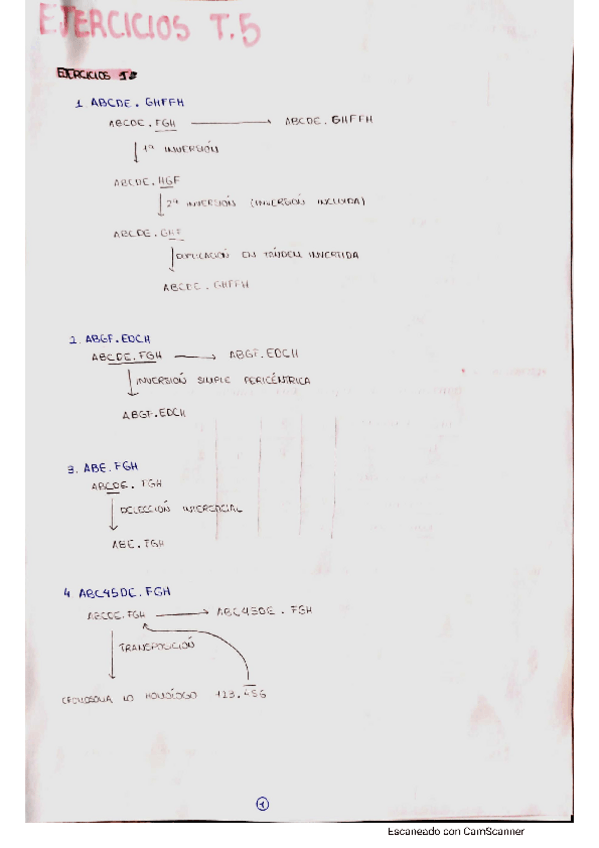 EJERCICIOS T.5
EJERCICIOS T.5
1 ABCDE. GHFFH
ABCDE. FGH ABCDE. GHFFH
1ª INVERSIÓN
ABCDE. HGF
2ª INVERSIÓN (INVERSIÓN INCLUIDA)
ABCDE. GHF
DUPLICACIÓN EN TÁNDEM INVERTIDA
ABCDE. GHFFH
2. ABGF.EDCH
ABCDE.FGH ABGF.EDCH
INVERSIÓN SIMPLE PERICÉNTRICA
ABGF.EDCH
3. ABE.FGH
ABCDE. FGH
DELECCIÓN INTERCALAR
ABE.FGH
4 ABC45DE.FGH
ABCDE.FGH ABC45DE.FGH
TRANSPOSICIÓN
CROMOSOMA NO HOMÓLOGO 123.456
1
Escaneado con CamScanner